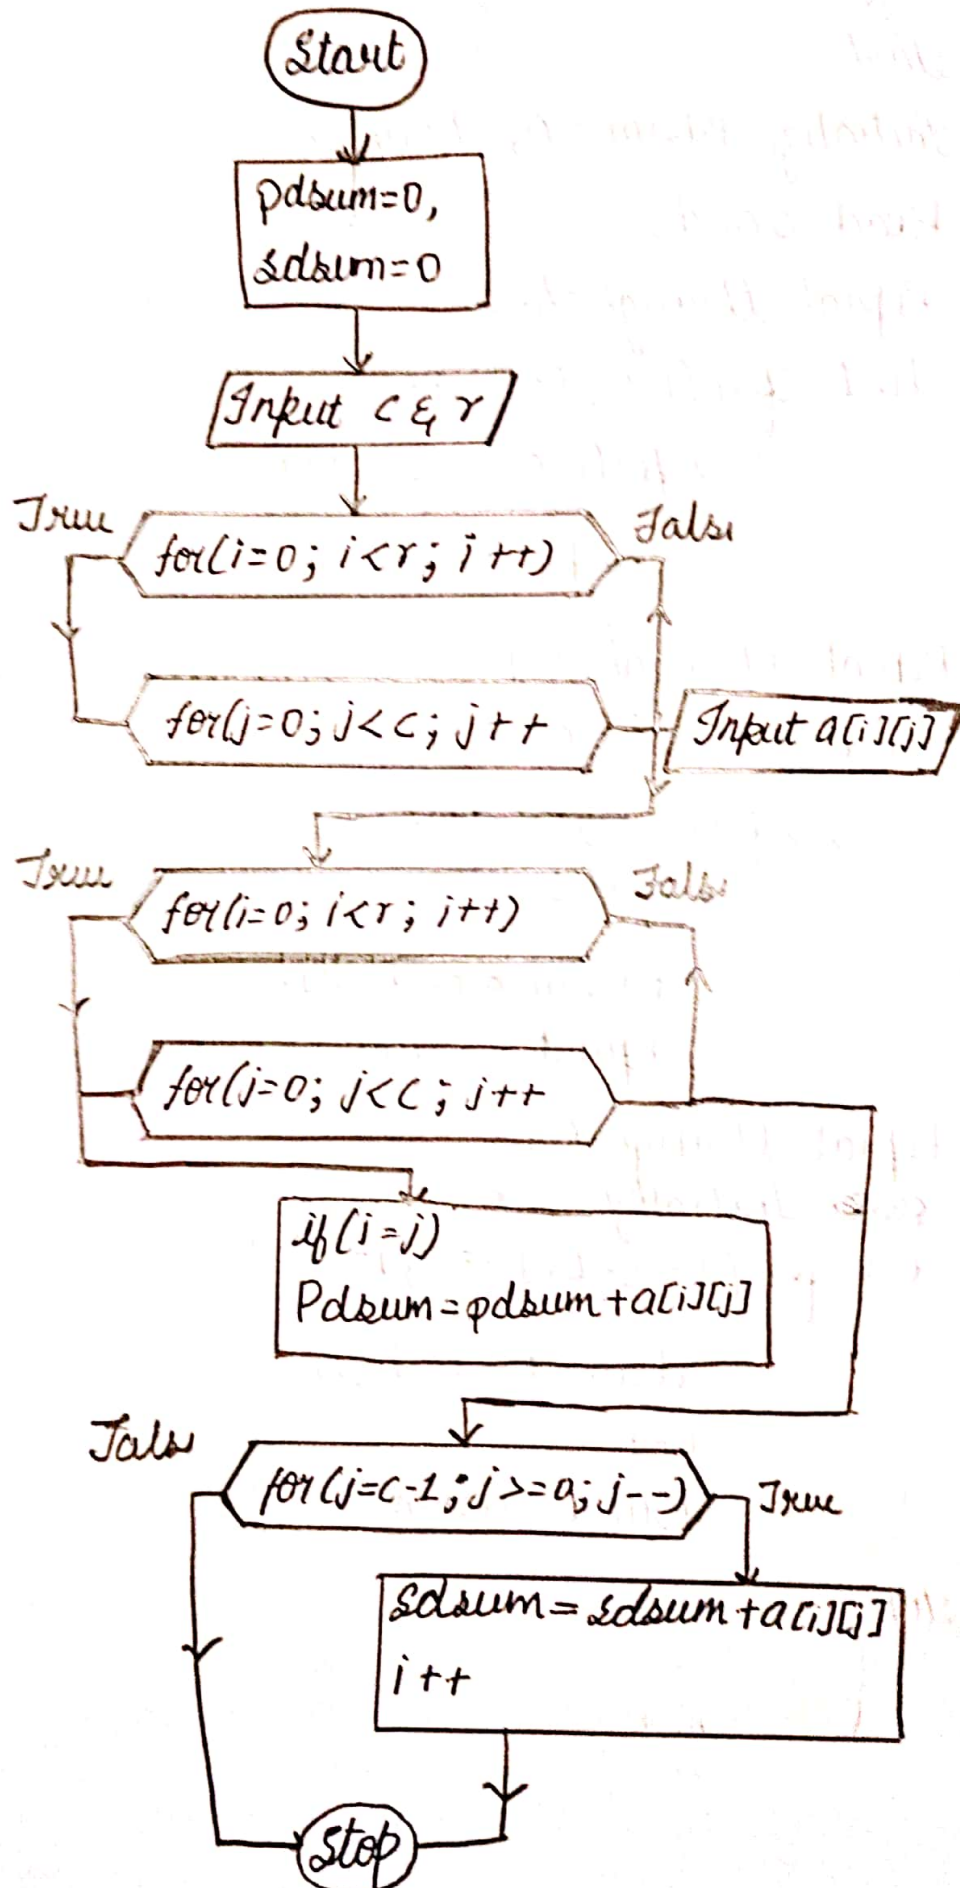 Start
pdsum=0,
sdsum=0
Input c & r
True
False
for(i=0; i<r; i++)
for(j=0; j<c; j++
Input a[i][j]
True
False
for(i=0; i<r; i++)
for(j=0; j<c; j++
if(i=j)
Pdsum=pdsum+a[i][j]
False
for(j=c-1; j>=0; j--)
True
sdsum=sdsum+a[i][j]
i++
Stop